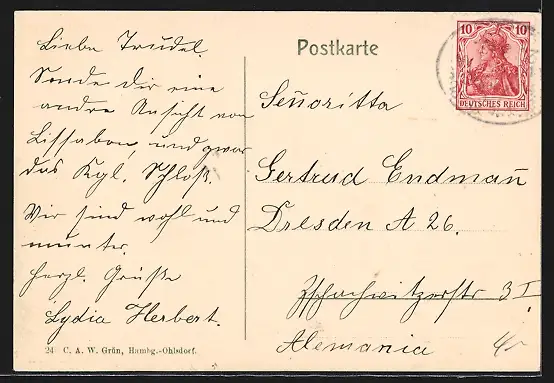 Liebe Trudel.
Sende dir eine
andre Ansicht von
Lissabon, und zwar
das Kgl. Schloß.
Wir sind wohl und
munter.
Herzl. Grüße
Lydia Herbert.
24 C. A. W. Grün, Hambg.-Ohlsdorf.
Postkarte
10 10
DEUTSCHES REICH
Señoritta
Gertrud Endmann̄
Dresden A 26.
Zschachwitzerstr 3 I
Alemania